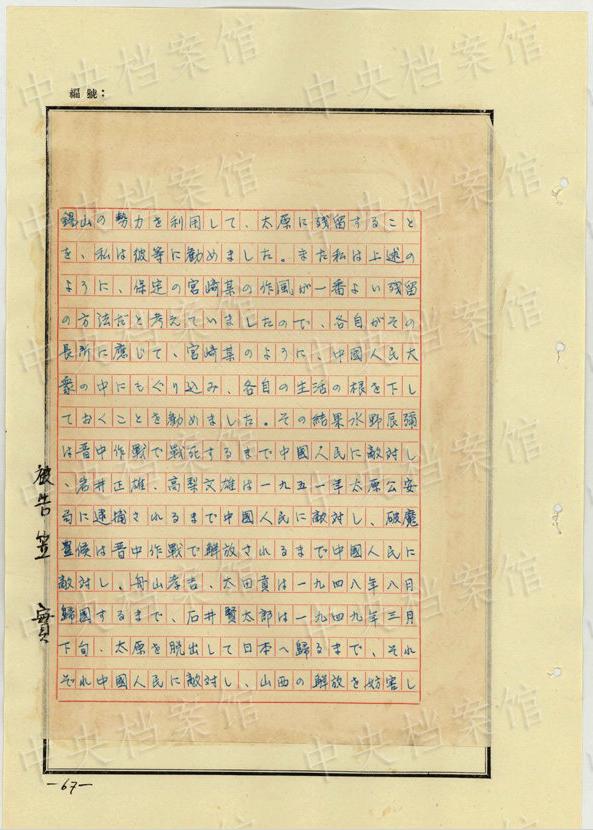 編號：
錫山の勢力を利用して、太原に残留すること
を、私は彼等に勧めました。また私は上述の
ように、保定の宮崎某の作風が一番よい残留
の方法だと考えていましたので、各自がその
長所に應じて、宮崎某のように、中國人民大
衆の中にもぐり込み、各自の生活の根を下し
ておくことを勧めました。その結果水野辰彌
は晋中作戦で戦死するまで中國人民に敵対し
、岩井正雄、高梨文雄は一九五一年太原公安
局に逮捕されるまで中國人民に敵対し、破魔
置候は晋中作戦で解放されるまで中國人民に
敵対し、舟山孝吉、太田貢は一九四八年八月
歸國するまで、石井賢太郎は一九四九年三月
下旬、太原を脱出して日本へ歸るまで、それ
ぞれ中國人民に敵対し、山西の解放を妨害し
被告 笠 實
—67—
中央档案馆